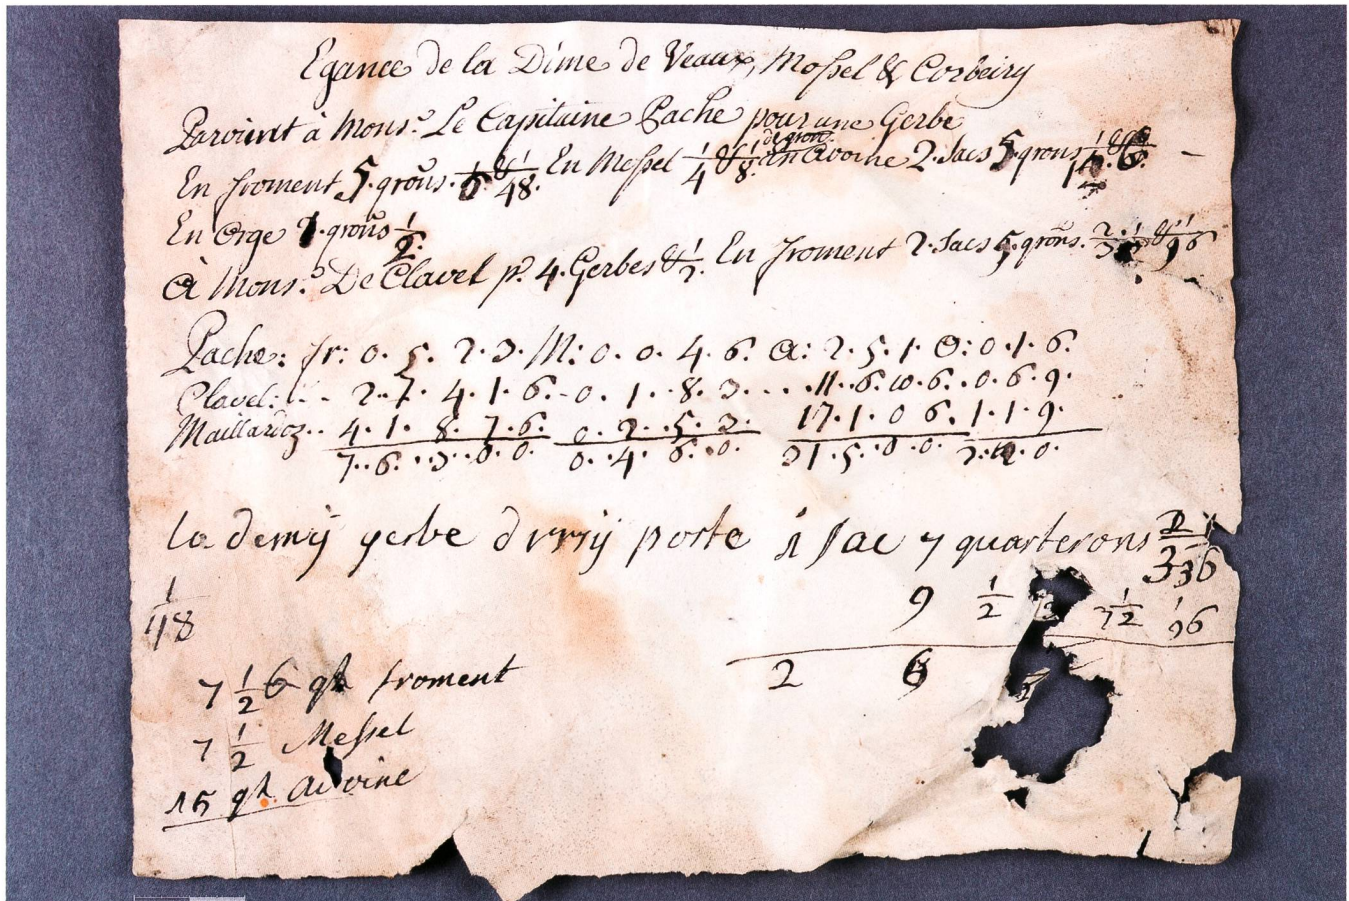 Egance de la Dime de Veaux, Mossel & Corbeiry
Parvient à Mons.r Le Capitaine Pache pour une Gerbe
En froment 5. grons. & 1/48. En Messel 1/4 & 1/8. en avoine 2. sacs 5. grons
En Orge 1. grons 1/2.
à Mons.r De Clavel p.r 4. Gerbes & 1/2. En froment 2. sacs 5. grons. & 1/96
Pache: fr: 0. 5. 2. 3. M: 0. 0. 4. 6. A: 2. 5. 1. O: 0. 1. 6.
Clavel: 2. 7. 4. 1. 6. 0. 1. 8. 3. 11. 6. 10. 6. 0. 6. 9.
Maillardoz 4. 1. 8. 7. 6. 0. 2. 5. 3. 17. 1. 0 6. 1. 1. 9.
7. 6. 3. 0. 0. 0. 4. 6. 0. 31. 5. 0. 0. 2. 0.
la demÿ gerbe porte 1 sac 7 quarterons 336
9 1/2 1/2 1/96
1/48
2 6
7 1/2 froment
7 1/2 Messel
15 avoine